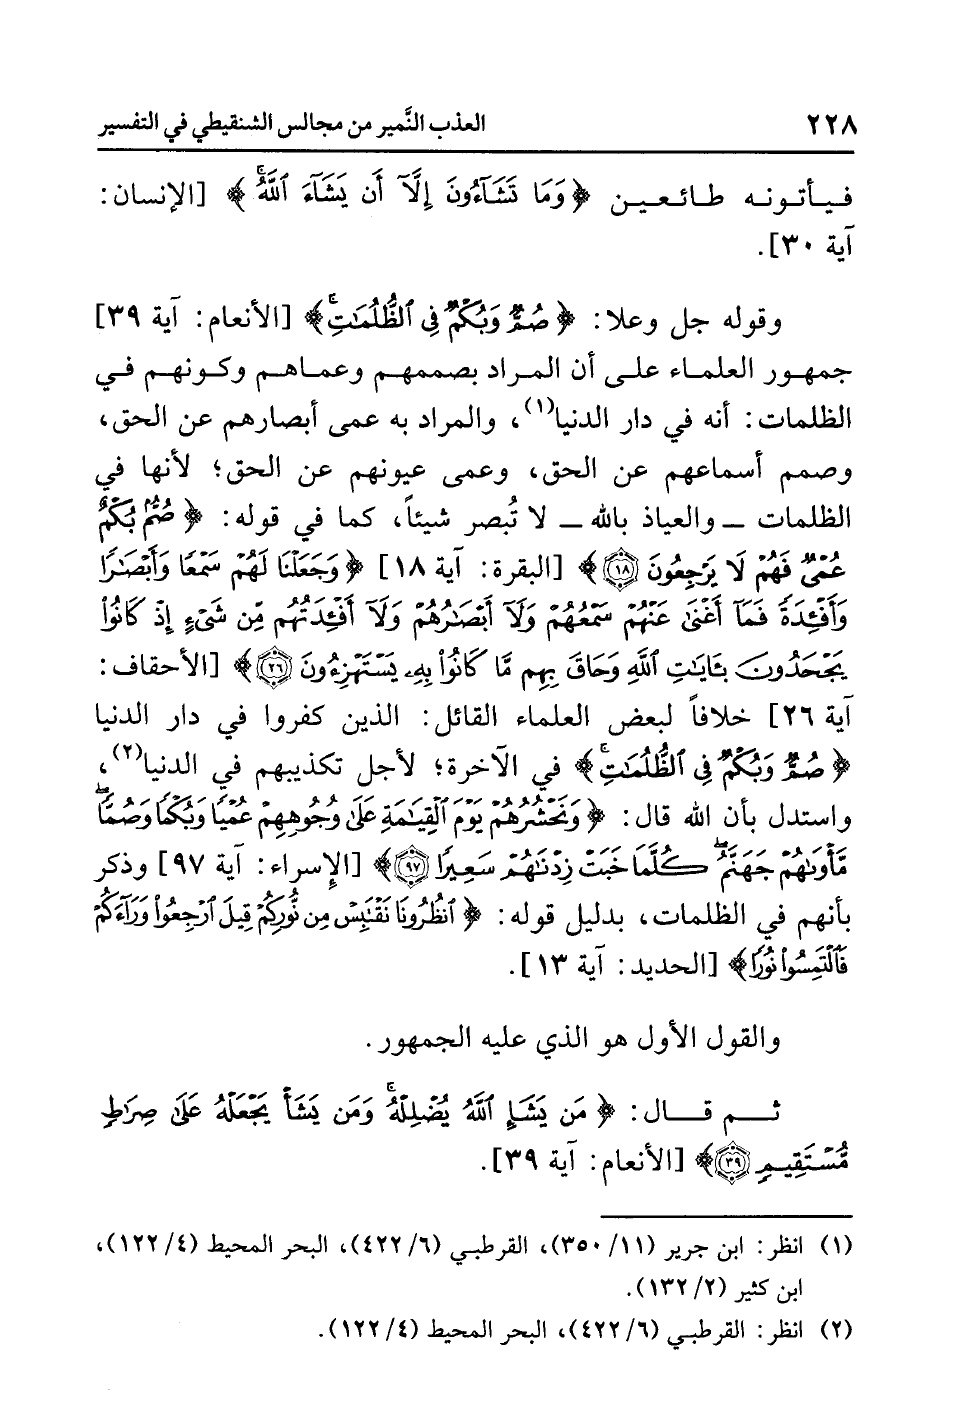 ٢٢٨ العذب النَّمير من مجالس الشنقيطي في التفسير
فيأتونه طائعين ﴿وَمَا تَشَآءُونَ إِلَّآ أَن يَشَآءَ ٱللَّهُۚ﴾ [الإنسان:
آية ٣٠].
وقوله جل وعلا: ﴿صُمٌّ وَبُكْمٌ فِى ٱلظُّلُمَٰتِۗ﴾ [الأنعام: آية ٣٩]
جمهور العلماء على أن المراد بصممهم وعماهم وكونهم في
الظلمات: أنه في دار الدنيا(١)، والمراد به عمى أبصارهم عن الحق،
وصمم أسماعهم عن الحق، وعمى عيونهم عن الحق؛ لأنها في
الظلمات ــ والعياذ بالله ــ لا تُبصر شيئاً، كما في قوله: ﴿صُمٌّۢ بُكْمٌ
عُمْىٌ فَهُمْ لَا يَرْجِعُونَ ۝١٨﴾ [البقرة: آية ١٨] ﴿وَجَعَلْنَا لَهُمْ سَمْعًا وَأَبْصَٰرًا
وَأَفْـِٔدَةً فَمَآ أَغْنَىٰ عَنْهُمْ سَمْعُهُمْ وَلَآ أَبْصَٰرُهُمْ وَلَآ أَفْـِٔدَتُهُم مِّن شَىْءٍ إِذْ كَانُوا۟
يَجْحَدُونَ بِـَٔايَٰتِ ٱللَّهِ وَحَاقَ بِهِم مَّا كَانُوا۟ بِهِۦ يَسْتَهْزِءُونَ ۝٢٦﴾ [الأحقاف:
آية ٢٦] خلافاً لبعض العلماء القائل: الذين كفروا في دار الدنيا
﴿صُمٌّ وَبُكْمٌ فِى ٱلظُّلُمَٰتِۗ﴾ في الآخرة؛ لأجل تكذيبهم في الدنيا(٢)،
واستدل بأن الله قال: ﴿وَنَحْشُرُهُمْ يَوْمَ ٱلْقِيَٰمَةِ عَلَىٰ وُجُوهِهِمْ عُمْيًا وَبُكْمًا وَصُمًّاۖ
مَّأْوَىٰهُمْ جَهَنَّمُۖ كُلَّمَا خَبَتْ زِدْنَٰهُمْ سَعِيرًا ۝٩٧﴾ [الإسراء: آية ٩٧] وذكر
بأنهم في الظلمات، بدليل قوله: ﴿ٱنظُرُونَا نَقْتَبِسْ مِن نُّورِكُمْ قِيلَ ٱرْجِعُوا۟ وَرَآءَكُمْ
فَٱلْتَمِسُوا۟ نُورًا﴾ [الحديد: آية ١٣].
والقول الأول هو الذي عليه الجمهور.
ثم قال: ﴿مَن يَشَإِ ٱللَّهُ يُضْلِلْهُۚ وَمَن يَشَأْ يَجْعَلْهُ عَلَىٰ صِرَٰطٍ
مُّسْتَقِيمٍ ۝٣٩﴾ [الأنعام: آية ٣٩].
(١) انظر: ابن جرير (١١/ ٣٥٠)، القرطبي (٦/ ٤٢٢)، البحر المحيط (٤/ ١٢٢)،
ابن كثير (٢/ ١٣٢).
(٢) انظر: القرطبي (٦/ ٤٢٢)، البحر المحيط (٤/ ١٢٢).